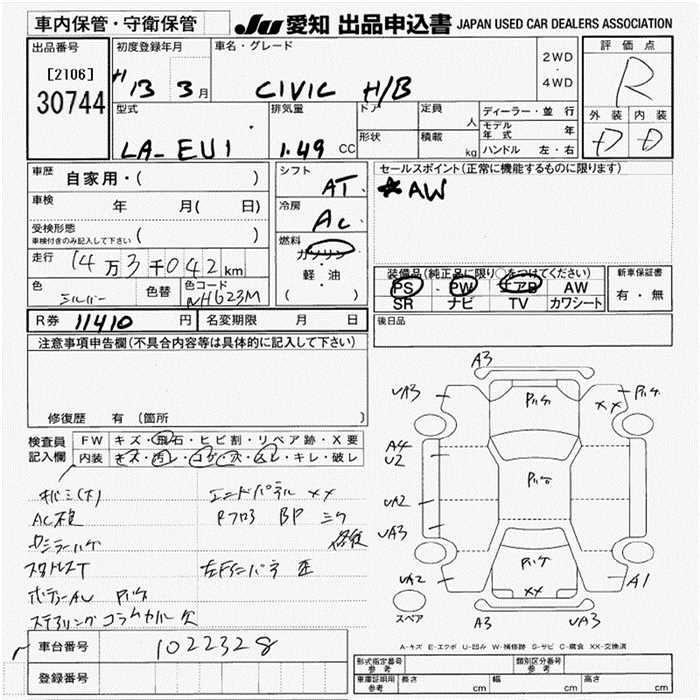 車内保管・守衛保管
JU 愛知 出品申込書 JAPAN USED CAR DEALERS ASSOCIATION
出品番号
[2106]
30744
初度登録年月
H13 3月
車名・グレード
CIVIC H/B
2WD
・
4WD
評価点
R
外装 内装
D D
型式
LA-EU1
排気量
1.49 CC
ドア
形状
定員
人
積載
kg
ディーラー・並行
モデル年式 年
ハンドル 左・右
車歴
自家用・( )
車検
年 月( 日)
受検形態
車検付きのみ記入して下さい ( )
走行
14万3千042km
色
シルバー
色替
色コード
NH623M
R券 11410 円
名変期限 月 日
シフト
AT
冷房
AC
燃料
ガソリン
軽・油
( )
セールスポイント(正常に機能するものに限ります)
*AW
装備品(純正品に限り○をつけてください)
PS・PW・エアB AW
SR ナビ TV カワシート
新車保証書
有・無
後日品
注意事項申告欄(不具合内容等は具体的に記入して下さい)
修復歴 有(箇所 )
検査員
記入欄
FW キズ・飛石・ヒビ割・リペア跡・X要
内装 キズ・汚レ・コゲ・穴・ムレ・キレ・破レ
エンドパネル XX
AC検
Rフロア BP ミケ
修復
ボディーAU
ステアリングコラムカバー欠
車台番号 1022328
登録番号
A3
UA3
XX
A4
U2
UA2
UA3
UA2
XX
A1
A3
UA3
スペア
A-キズ E-エクボ U-凹み W-補修跡 S-サビ C-腐食 XX-交換済
形式指定番号
参考
類別区分番号
参考
車庫証明用
参考
長さ cm
幅 cm
高さ cm